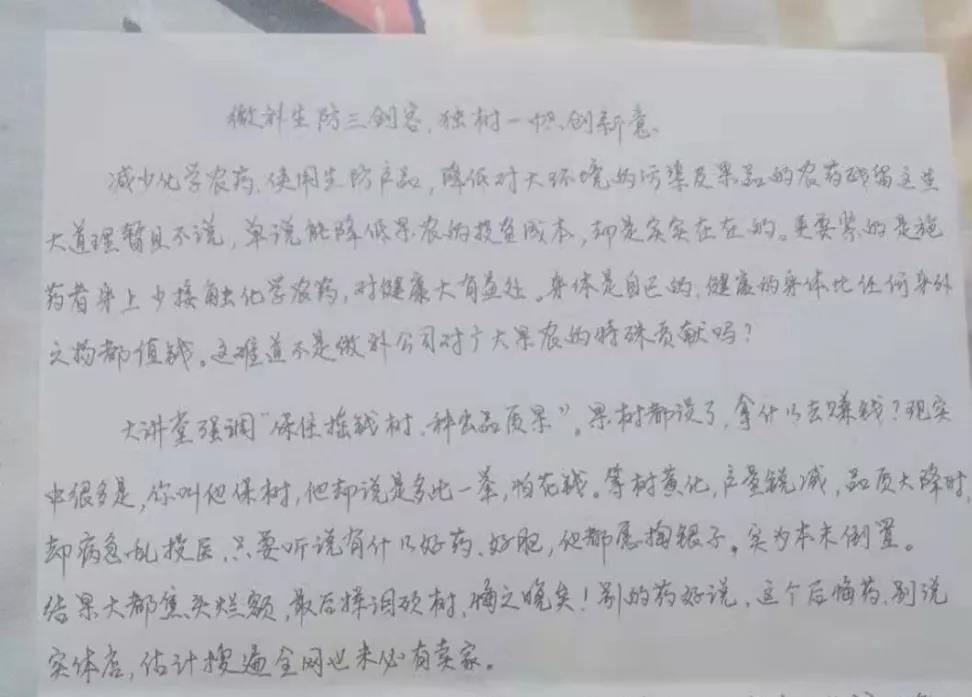 微补生防三剑客,独树一帜创新意。
减少化学农药,使用生防产品,降低对大环境的污染及果品的农药残留这些
大道理暂且不说,单说能降低果农的投资成本,却是实实在在的。更要紧的是施
药者身上少接触化学农药,对健康大有益处。身体是自己的,健康的身体比任何身外
之物都值钱。这难道不是微补公司对广大果农的特殊贡献吗?
大讲堂强调“保住摇钱树,种出品质果”。果树都没了,拿什么去赚钱?现实
中很多是,你叫他保树,他却说是多此一举,怕花钱。等树黄化,产量锐减,品质大降时,
却病急乱投医,只要听说有什么好药、好肥,他都愿掏银子。实为本末倒置。
结果大都焦头烂额,最后挥泪砍树,悔之晚矣!别的药好说,这个后悔药,别说
实体店,估计搜遍全网也未必有卖家。